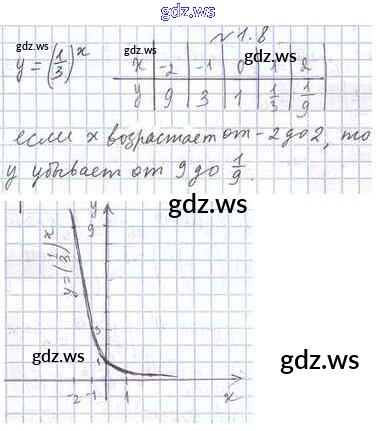 gdz.ws
№1.8
gdz.ws gdz.ws gdz.ws
y = (1/3)^x
x | -2 | -1 | 0 | 1 | 2
y | 9 | 3 | 1 | 1/3 | 1/9
если x возрастает от -2 до 2, то
y убывает от 9 до 1/9.
gdz.ws
y
9
y = (1/3)^x
3
gdz.ws gdz.ws gdz.ws
1
-2 -1 1 x
gdz.ws